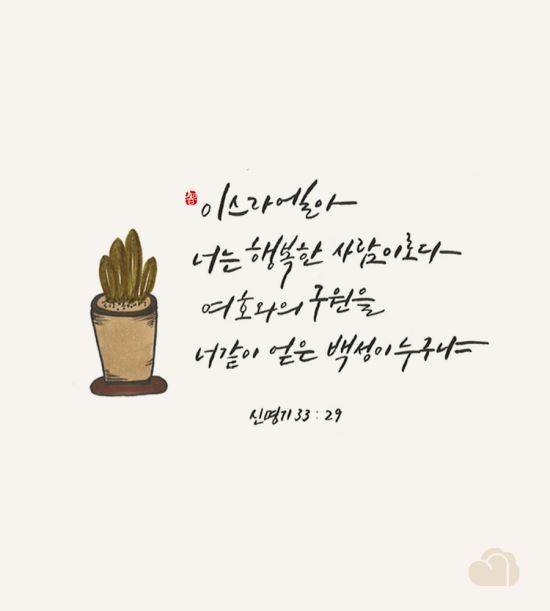 이스라엘아
너는 행복한 사람이로다
여호와의 구원을
너같이 얻은 백성이 누구냐
신명기 33 : 29